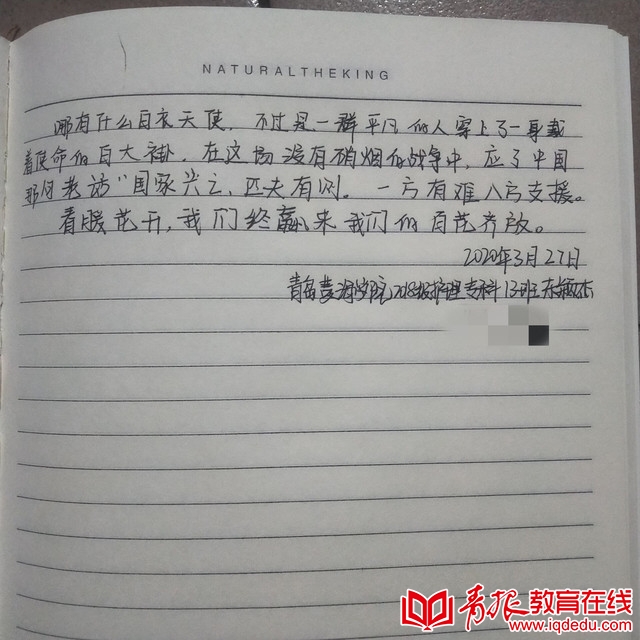 NATURALTHEKING
哪有什么白衣天使，不过是一群平凡的人穿上了一身载
着使命的白大褂。在这场没有硝烟的战争中，应了中国
那句老话"国家兴亡，匹夫有则。一方有难八方支援。
春暖花开，我们终赢来我们的百花齐放。
2020年3月27日
青岛黄海学院2018级护理专科13班
青报教育在线
www.iqdedu.com